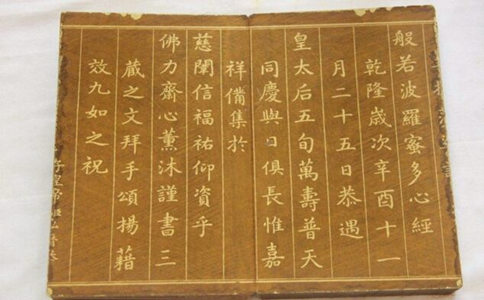 般若波羅蜜多心經
乾隆歲次辛酉十一
月二十五日恭遇
皇太后五旬萬壽普天
同慶與日俱長惟嘉
祥備集於
慈闈信福祐仰資乎
佛力齋心薰沐謹書三
藏之文拜手頌揚藉
效九如之祝